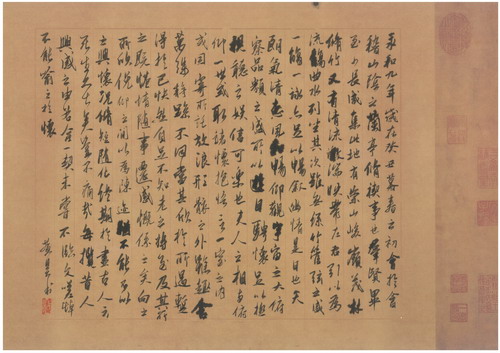 永和九年歲在癸丑暮春之初會於會
稽山陰之蘭亭脩禊事也羣賢畢
至少長咸集此地有崇山峻嶺茂林
脩竹又有清流激湍映帶左右引以為
流觴曲水列坐其次雖無絲竹管弦之盛
一觴一詠亦足以暢敘幽情是日也天
朗氣清惠風和暢仰觀宇宙之大俯
察品類之盛所以遊目騁懷足以極
視聽之娛信可樂也夫人之相與俯
仰一世或取諸懷抱悟言一室之內
或因寄所託放浪形骸之外雖趣舍
萬殊靜躁不同當其欣於所遇蹔
得於己快然自足不知老之將至及其所
之既惓情隨事遷感慨係之矣向之
所欣俛仰之間以為陳迹猶不能不以
之興懷況脩短隨化終期於盡古人云
死生亦大矣豈不痛哉每攬昔人
興感之由若合一契未嘗不臨文嗟悼
不能喻之於懷